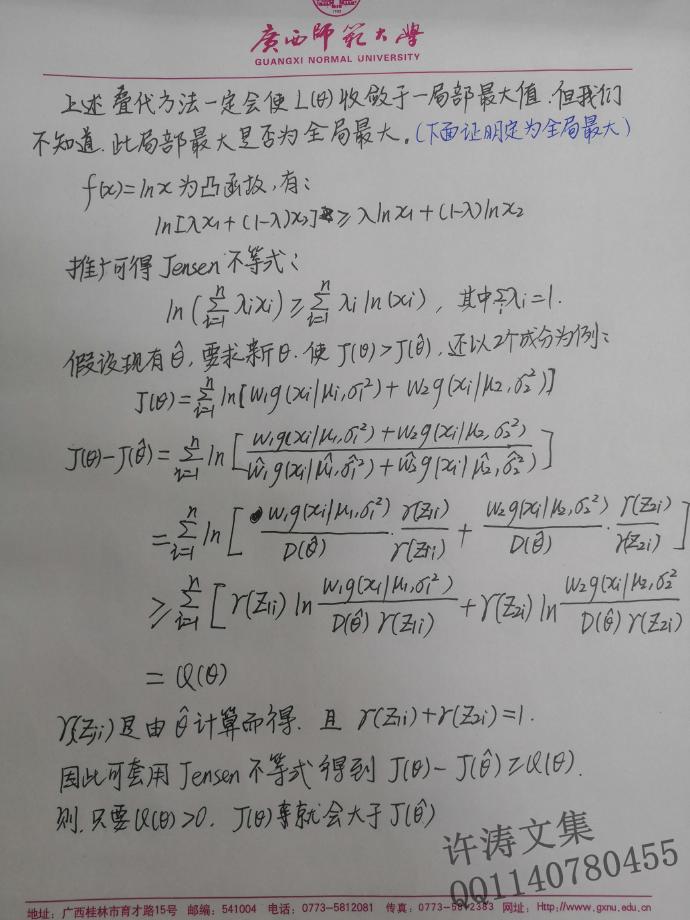 广西师范大学
GUANGXI NORMAL UNIVERSITY
上述叠代方法一定会使 L(θ)收敛于一局部最大值.但我们
不知道.此局部最大是否为全局最大。(下面证明定为全局最大)
f(x)=lnx为凸函数,有:
ln[λx₁+(1-λ)x₂] ≥ λlnx₁+(1-λ)lnx₂
推广可得Jensen不等式:
ln(∑ᵢ₌₁ⁿ λᵢxᵢ) ≥ ∑ᵢ₌₁ⁿ λᵢ ln(xᵢ), 其中∑ᵢλᵢ=1.
假设现有θ̂,要求新θ.使J(θ)>J(θ̂),还以2个成分为例:
J(θ)=∑ᵢ₌₁ⁿ ln[w₁g(xᵢ|μ₁,σ₁²)+w₂g(xᵢ|μ₂,σ₂²)]
J(θ)-J(θ̂)=∑ᵢ₌₁ⁿ ln[(w₁g(xᵢ|μ₁,σ₁²)+w₂g(xᵢ|μ₂,σ₂²))/(ŵ₁g(xᵢ|μ̂₁,σ̂₁²)+ŵ₂g(xᵢ|μ̂₂,σ̂₂²))]
=∑ᵢ₌₁ⁿ ln[w₁g(xᵢ|μ₁,σ₁²)/D(θ̂)·γ(z₁ᵢ)/γ(z₁ᵢ)+w₂g(xᵢ|μ₂,σ₂²)/D(θ̂)·γ(z₂ᵢ)/γ(z₂ᵢ)]
≥∑ᵢ₌₁ⁿ[γ(z₁ᵢ)ln w₁g(xᵢ|μ₁,σ₁²)/(D(θ̂)γ(z₁ᵢ))+γ(z₂ᵢ)ln w₂g(xᵢ|μ₂,σ₂²)/(D(θ̂)γ(z₂ᵢ))
=Q(θ)
γ(zⱼᵢ)是由θ̂计算而得.且 γ(z₁ᵢ)+γ(z₂ᵢ)=1.
因此可套用Jensen不等式得到 J(θ)-J(θ̂)≥Q(θ).
则.只要Q(θ)>0. J(θ)就会大于J(θ̂)
许涛文集
QQ1140780455
地址:广西桂林市育才路15号 邮编:541004 电话:0773-5812081 传真:0773-5812383 网址:Http://www.gxnu.edu.cn